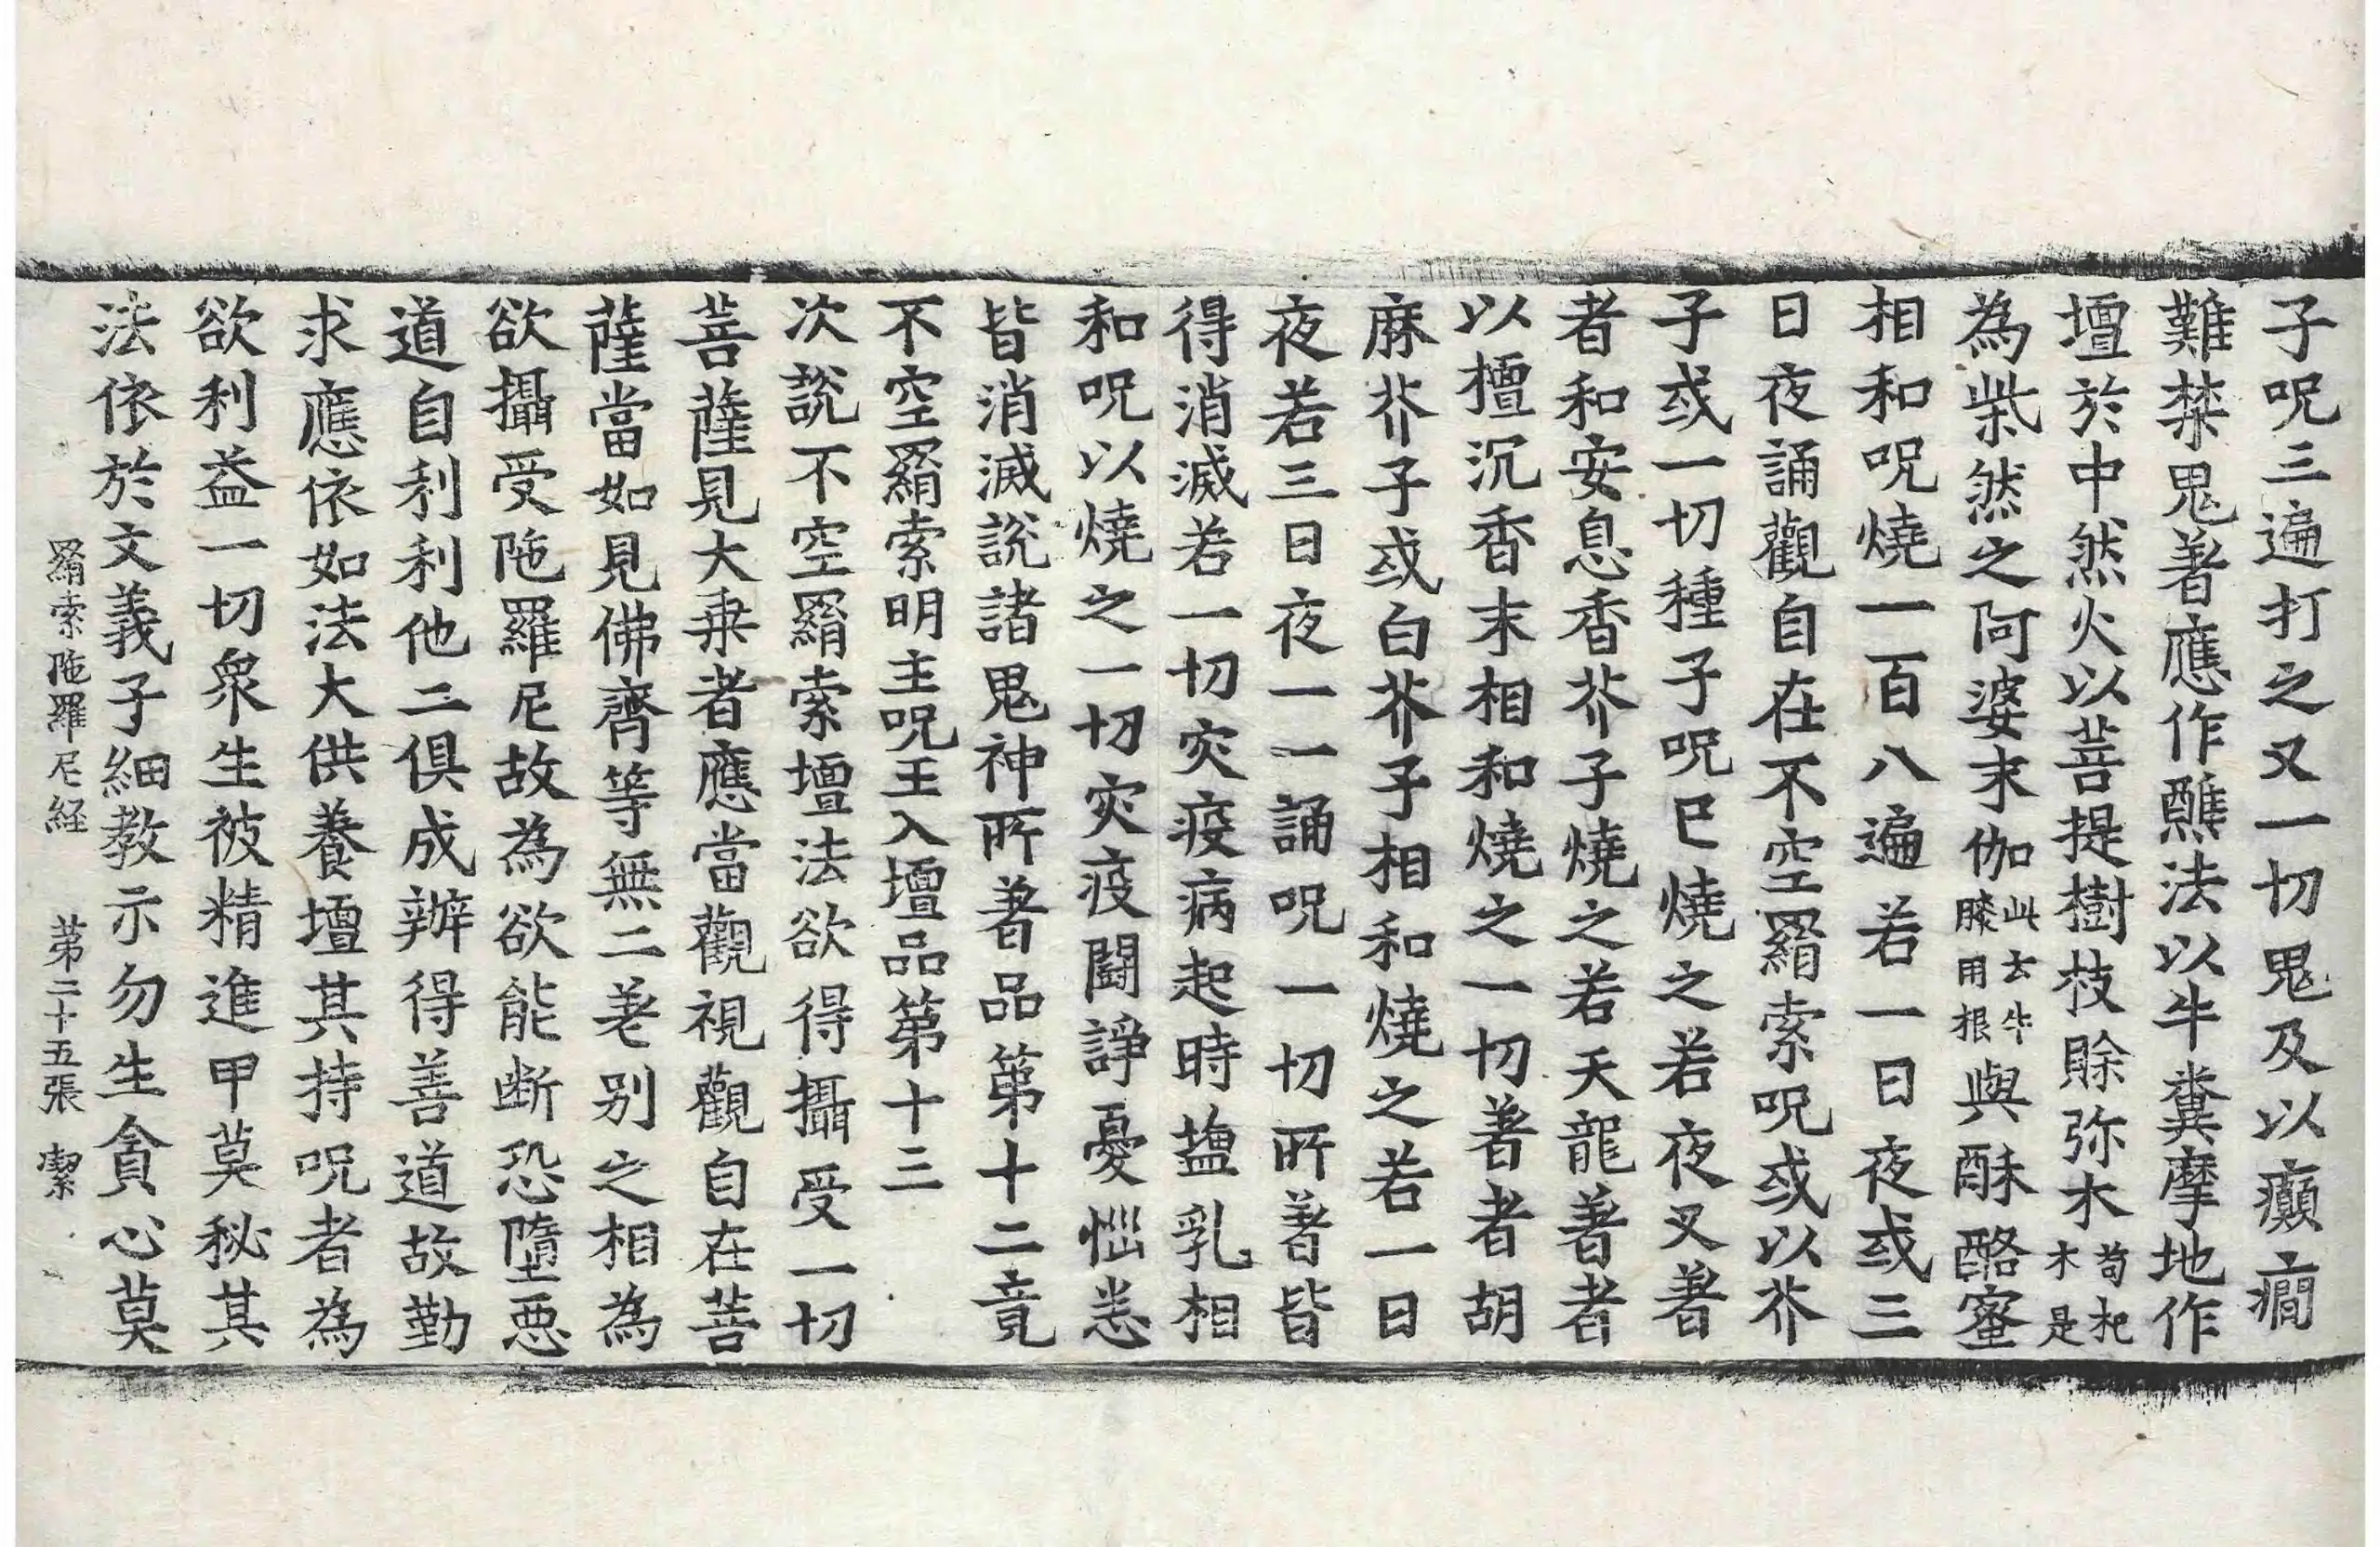 子呪三遍打之又一切鬼及以癲癇
難禁鬼著應作醮法以牛糞摩地作
壇於中然火以菩提樹枝賒弥木苟杞木是
為柴然之阿婆末伽此云牛膝用根與酥酪蜜
相和呪燒一百八遍若一日夜或三
日夜誦觀自在不空羂索呪或以芥
子或一切種子呪已燒之若夜叉著
者和安息香芥子燒之若天龍著者
以檀沉香末相和燒之一切著者胡
麻芥子或白芥子相和燒之若一日
夜若三日夜一一誦呪一切所著皆
得消滅若一切灾疫病起時藍乳相
和呪以燒之一切灾疫鬪諍憂惱恙
皆消滅說諸鬼神所著品第十二竟
不空羂索明主呪王入壇品第十三
次說不空羂索壇法欲得攝受一切
菩薩見大乗者應當觀視觀自在菩
薩當如見佛齊等無二差别之相為
欲攝受陁羅尼故為欲能断恐墮惡
道自利利他二俱成辦得善道故勤
求應依如法大供養壇其持呪者為
欲利益一切衆生被精進甲莫秘其
法依於文義子細教示勿生貪心莫
羂索陁羅尼経 第二十五張 潔